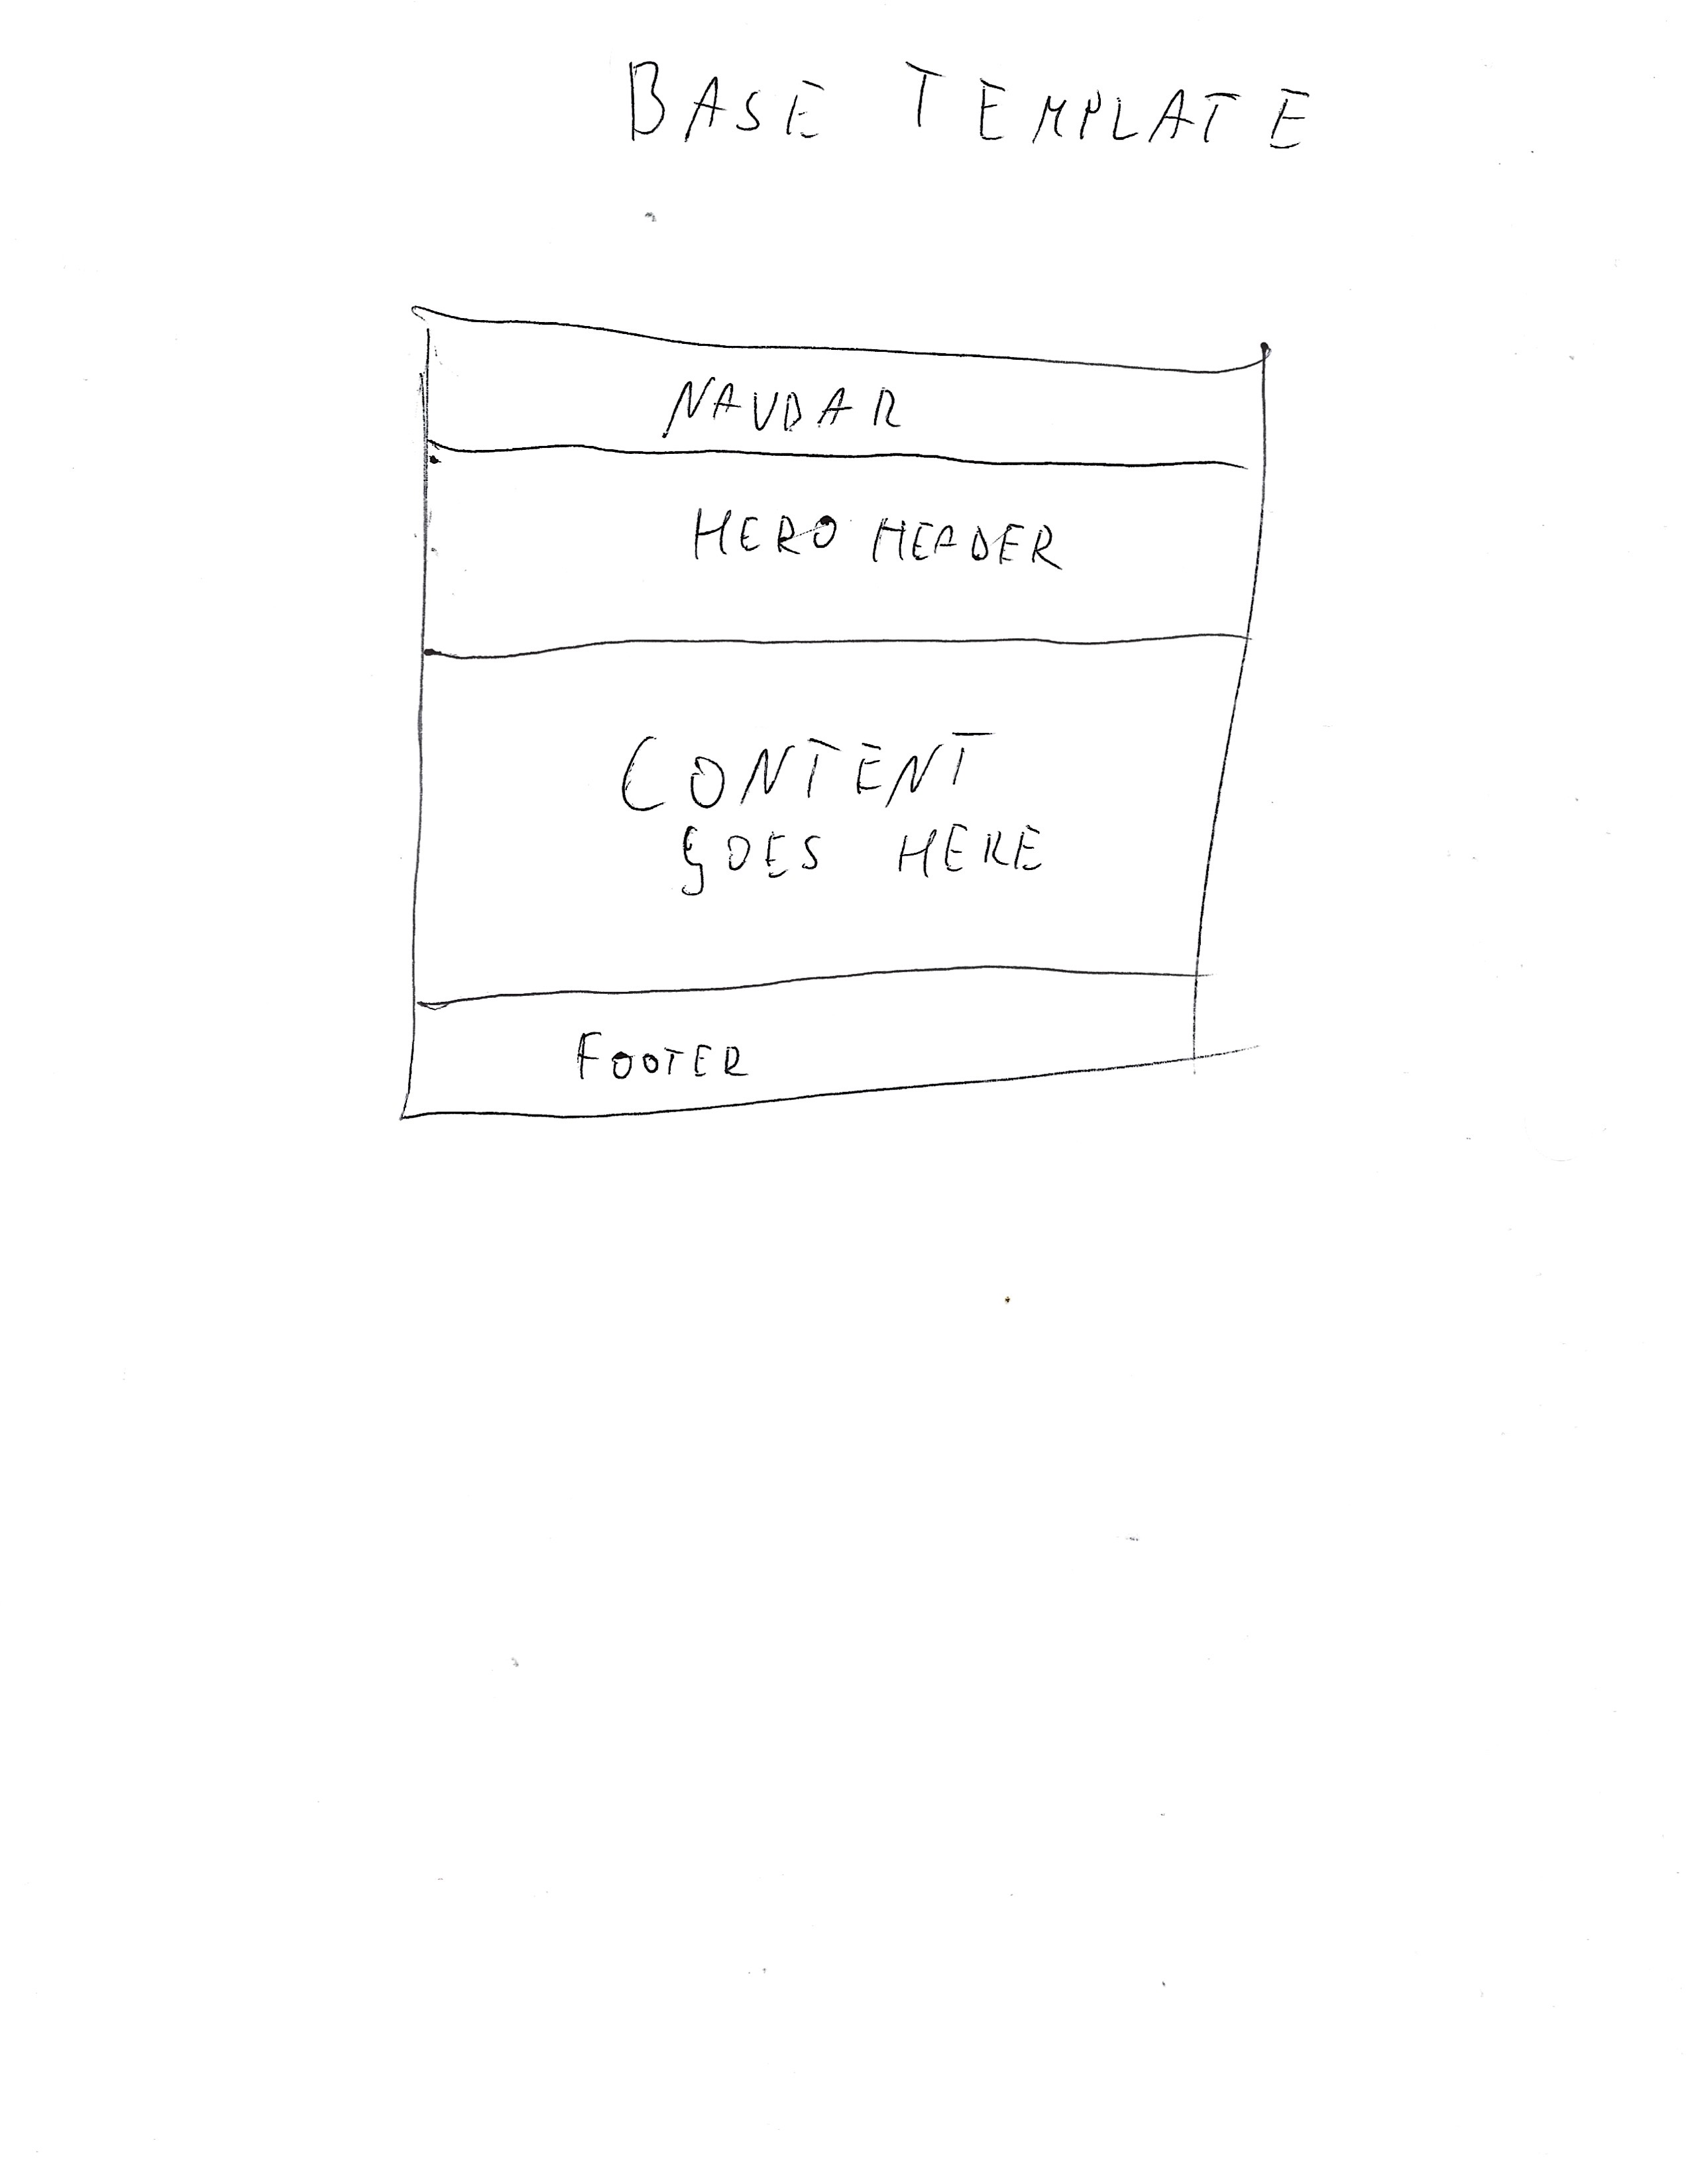 BASE TEMPLATE
NAVBAR
HERO HEADER
CONTENT
GOES HERE
FOOTER